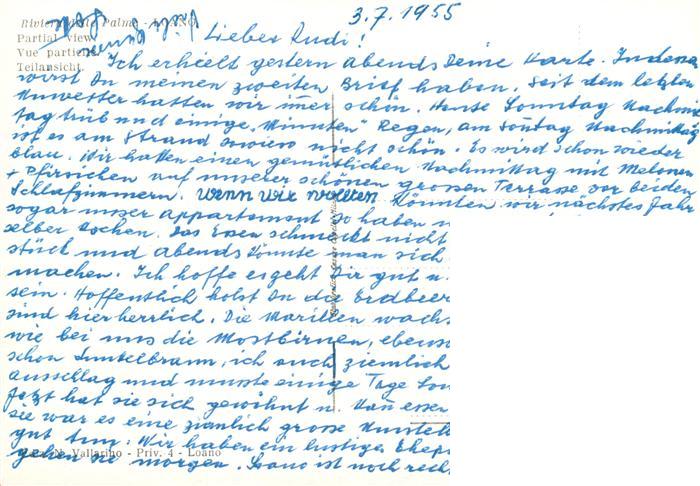 3.7.1955
Riviera delle Palme - LOANO
Partial view
Vue partielle
Teilansicht.
Lieber Rudi!
Ich erhielt gestern abends Deine Karte. Indessen
wirst Du meinen zweiten Brief haben. Seit dem letzten
Unwetter hatten wir imer schön. Heute Sonntag Nachmit
tag trüb und einige "Minuten" Regen, am Sontag Nachmittag
ist es am Strand sowieso nicht schön. Es wird schon wieder
blau. Wir hatten einen gemütlichen Nachmittag mit Melonen
+ Pfirsichen auf unserer schönen grossen Terrasse vor beiden
Schlafzimmern. Wenn wir wollten könnten wir nächstes Jahr
sogar unser appartement so haben
selber kochen. Das Essen schmeckt nicht
stück und abends könnte man sich
machen. Ich hoffe es geht Dir gut u.
sein. Hoffentlich holst Du die Erdbeer
sind hier herrlich. Die Marillen wachs
wie bei uns die Mostbirnen, ebenso
schon dunkelbraun, ich auch ziemlich
Ausschlag und musste einige Tage
Jetzt hat sie sich gewöhnt u.
sie war es eine ziemlich grosse Umstell
gut tun. Wir haben ein lustiges Ehep
gehen sie morgen. Loano ist noch rech
N. Vallarino - Priv. 4 - Loano